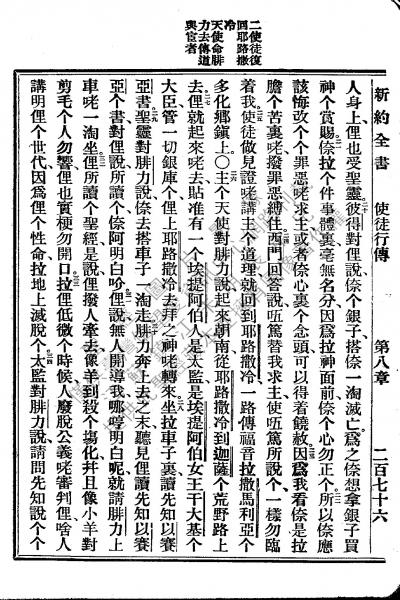 新約全書　使徒行傳　第八章　二百七十六
二使徒復
回耶路撒
冷
天使命腓
力去傳道
與宦者
人身上、俚也受聖靈、彼得對俚說、倷个銀子搭倷一淘滅亡、爲之倷想拿銀子買
神个賞賜、倷拉个件事體裏、毫無名分、因爲拉神面前、倷个心勿正、所以倷應
該悔改个个罪惡、咾求主、或者倷心裏个念頭、可以得着饒赦、因爲我看倷是拉
膽个苦裏、咾撥罪惡縛住、西門回答說、篤替我求主、使篤所說个、一樣勿臨
着我、使徒做見證、咾講主个道理、就回到耶路撒冷、一路傳福音拉撒馬利亞个
多化鄉鎮上、〇主个天使對腓力說、起來朝南、從耶路撒冷到迦薩个荒野路上
去、俚就起來咾去、貼准有一个埃提阿伯人、是太監、是埃提阿伯女王干大基个
大臣、管一切銀庫个、俚上耶路撒冷去拜之神咾轉來、坐拉車子裏、讀先知以賽
亞書、聖靈對腓力說、倷去搭車子一淘走、腓力奔上去之末、聽見俚讀先知以賽
亞个書、對俚說、所讀个倷阿明白、俚說、無人開導我、哪哼明白呢、就請腓力上
車咾一淘坐、俚所讀个聖經是說、俚撥人牽去、像羊到殺个場化、幷且像小羊對
剪毛个人勿響、俚也實梗勿開口、拉俚低微个時候、人廢脫公義咾審判俚、啥人
講明俚个世代、因爲俚个性命、拉地上滅脫个、太監對腓力說、請問先知說个个